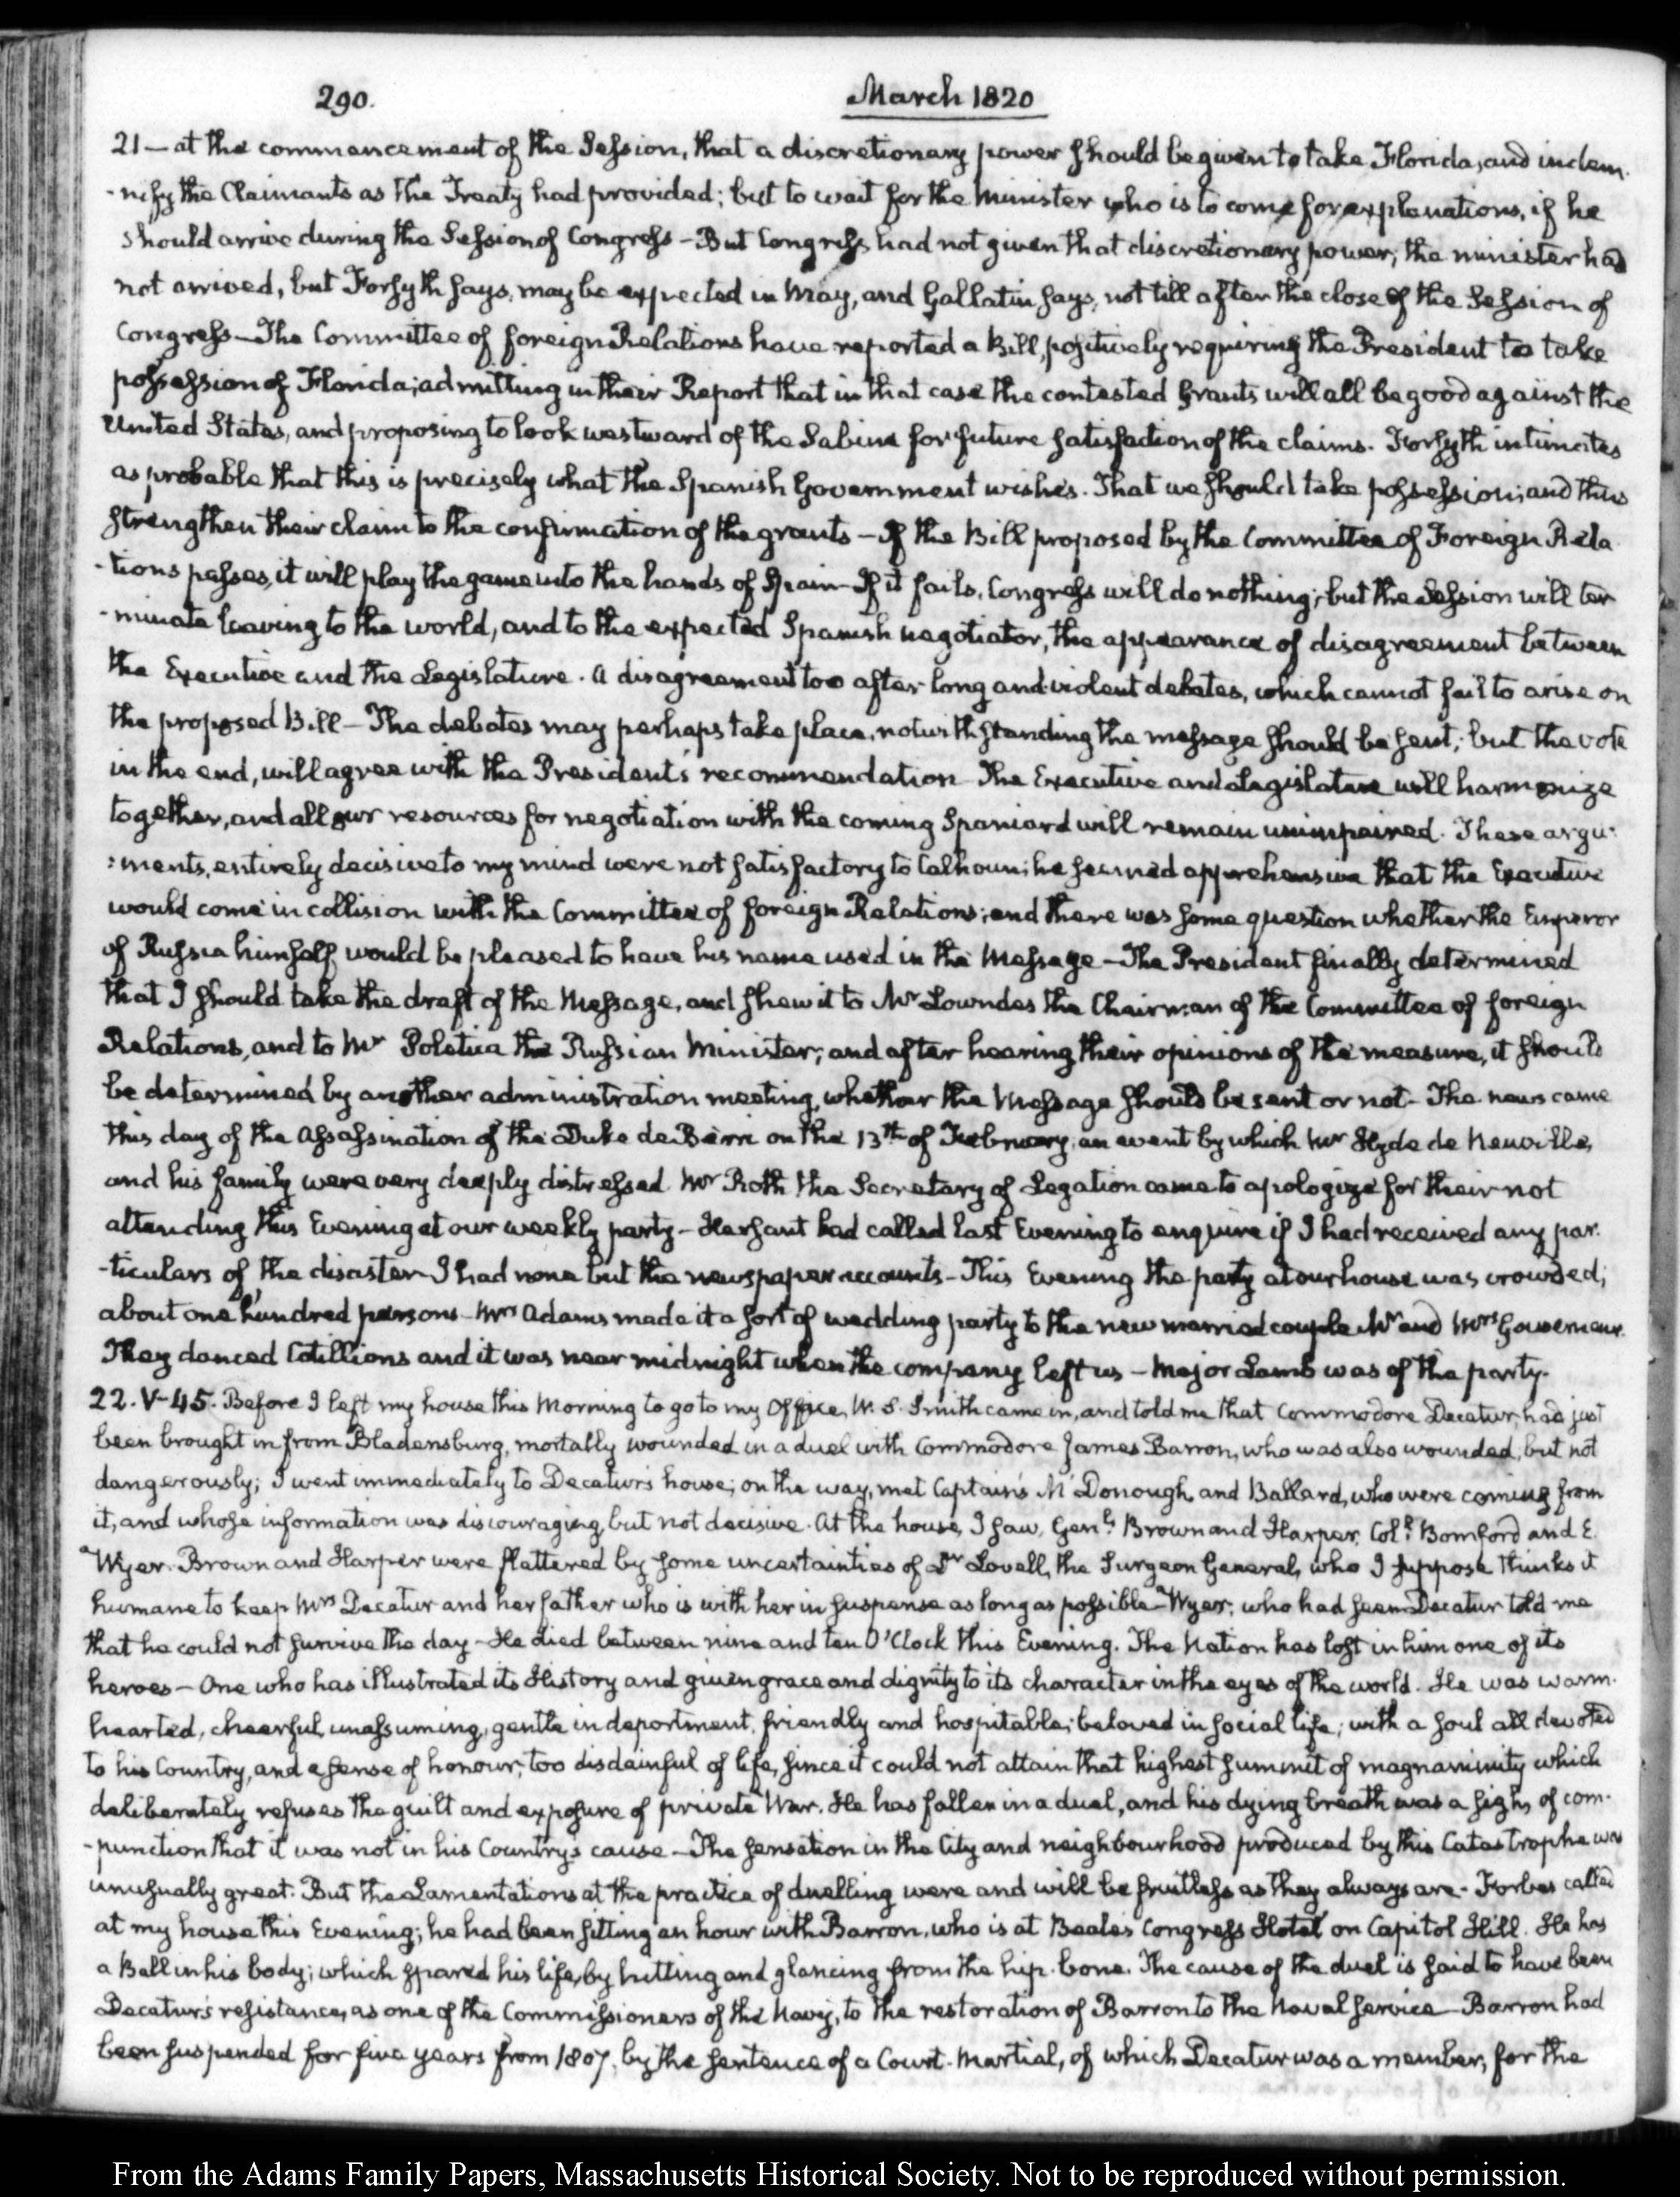 290.
March 1820
21 — at the commencement of the Session, that a discretionary power should be given to take Florida, and indem-
-nify the Claimants as the Treaty had provided; but to wait for the Minister who is to come for explanations, if he
should arrive during the Session of Congress - But Congress had not given that discretionary power, the minister had
not arrived, but Forsyth says, may be expected in May, and Gallatin says, not till after the close of the Session of
Congress — The Committee of foreign Relations have reported a Bill, positively requiring the President to take
possession of Florida; admitting in their Report that in that case the contested grants will all be good against the
United States, and proposing to look westward of the Sabine for future satisfaction of the claims. Forsyth intimates
as probable that this is precisely what the Spanish Government wishes. That we should take possession; and thus
strengthen their claim to the confirmation of the grants - If the Bill proposed by the Committee of Foreign Rela
-tions passes, it will play the game into the hands of Spain - If it fails, Congress will do nothing; but the Session will ter
-minate leaving to the world, and to the expected Spanish negotiator, the appearance of disagreement between
the Executive and the Legislature. A disagreement too after long and violent debates, which cannot fail to arise on
the proposed Bill - The debates may perhaps take place, notwithstanding the message should be sent; but the vote
in the end, will agree with the President's recommendation - The Executive and Legislature will harmonize
together, and all our resources for negotiation with the coming Spaniard will remain unimpaired. These argu-
-ments, entirely decisive to my mind were not satisfactory to Calhoun; he seemed apprehensive that the Executive
would come in collision with the Committee of foreign Relations; and there was some question whether the Emperor
of Russia himself would be pleased to have his name used in the Message — The President finally determined
that I should take the draft of the Message, and shew it to Mr Lowndes the Chairman of the Committee of foreign
Relations, and to Mr Poletica the Russian Minister; and after hearing their opinions of the measure, it should
be determined by another administration meeting, whether the Message should be sent or not - The news came
this day of the Assassination of the Duke de Berri on the 13th of February, an event by which Mr Hyde de Neuville,
and his family were very deeply distressed. Mr Roth the Secretary of Legation came to apologize for their not
attending this Evening at our weekly party - He sent had called last Evening to enquire if I had received any par-
-ticulars of the disaster - I had none but the newspaper accounts - This Evening the party at our house was crowded;
about one hundred persons - Mrs Adams made it a sort of wedding party to the new married couple Mr and Mrs Gouverneur.
They danced Cotillions and it was near midnight when the company left us - Major Lamb was of the party.
22. V-45. Before I left my house this Morning to go to my Office, W. S. Smith came in, and told me that Commodore Decatur, had just
been brought in from Bladensburg, mortally wounded in a duel with Commodore James Barron, who was also wounded, but not
dangerously; I went immediately to Decatur's house; on the way, met Captain's McDonough and Ballard, who were coming from
it, and whose information was discouraging, but not decisive. At the house, I saw, Genls Brown and Harper, Coll Bomford and E.
Wyer. Brown and Harper were flattered by some uncertainties of Dr Lovell, the Surgeon General, who I suppose thinks it
humane to keep Mrs Decatur and her father who is with her in suspense as long as possible - Wyer, who had seen Decatur told me
that he could not survive the day - He died between nine and ten O'Clock this Evening. The Nation has lost in him one of its
heroes - One who has illustrated its History and given grace and dignity to its character in the eyes of the world. He was warm-
hearted, cheerful, unassuming, gentle in deportment, friendly and hospitable; beloved in social life; with a soul all devoted
to his Country, and a sense of honour, too disdainful of life, since it could not attain that highest summit of magnanimity which
deliberately refuses the guilt and exposure of private War. He has fallen in a duel, and his dying breath was a sigh, of com-
-punction that it was not in his Country's cause - The sensation in the City and neighbourhood produced by this Catastrophe was
unusually great. But the Lamentations at the practice of duelling were and will be fruitless as they always are - Forbes called
at my house this Evening; he had been sitting an hour with Barron, who is at Beale's Congress Hotel on Capitol Hill. He has
a Ball in his body; which spared his life, by hitting and glancing from the hip-bone. The cause of the duel is said to have been
Decatur's resistance, as one of the Commissioners of the Navy, to the restoration of Barron to the Naval Service - Barron had
been suspended for five years from 1807, by the sentence of a Court-Martial, of which Decatur was a member, for the
From the Adams Family Papers, Massachusetts Historical Society. Not to be reproduced without permission.